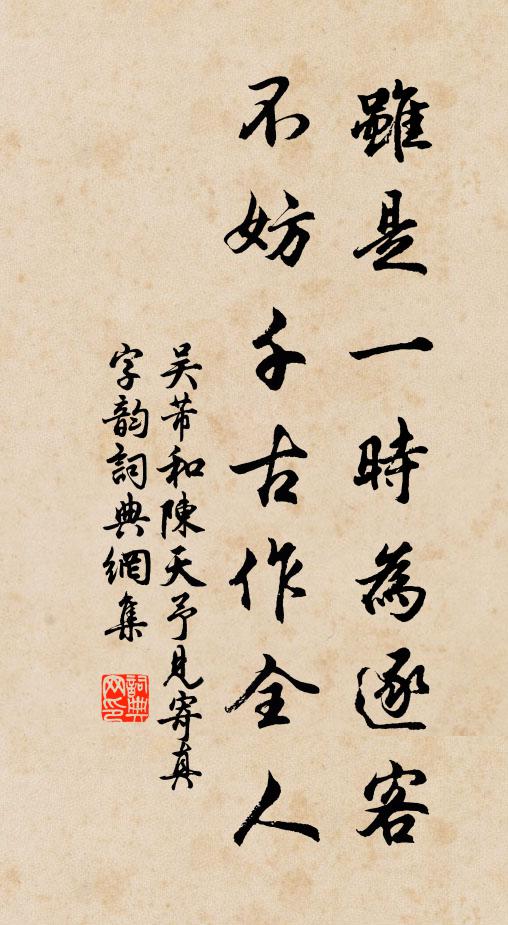 雖是一時為逐客
不妨千古作全人
吴芾和陳天予見寄真
字韵詞典網集
詞典
网印